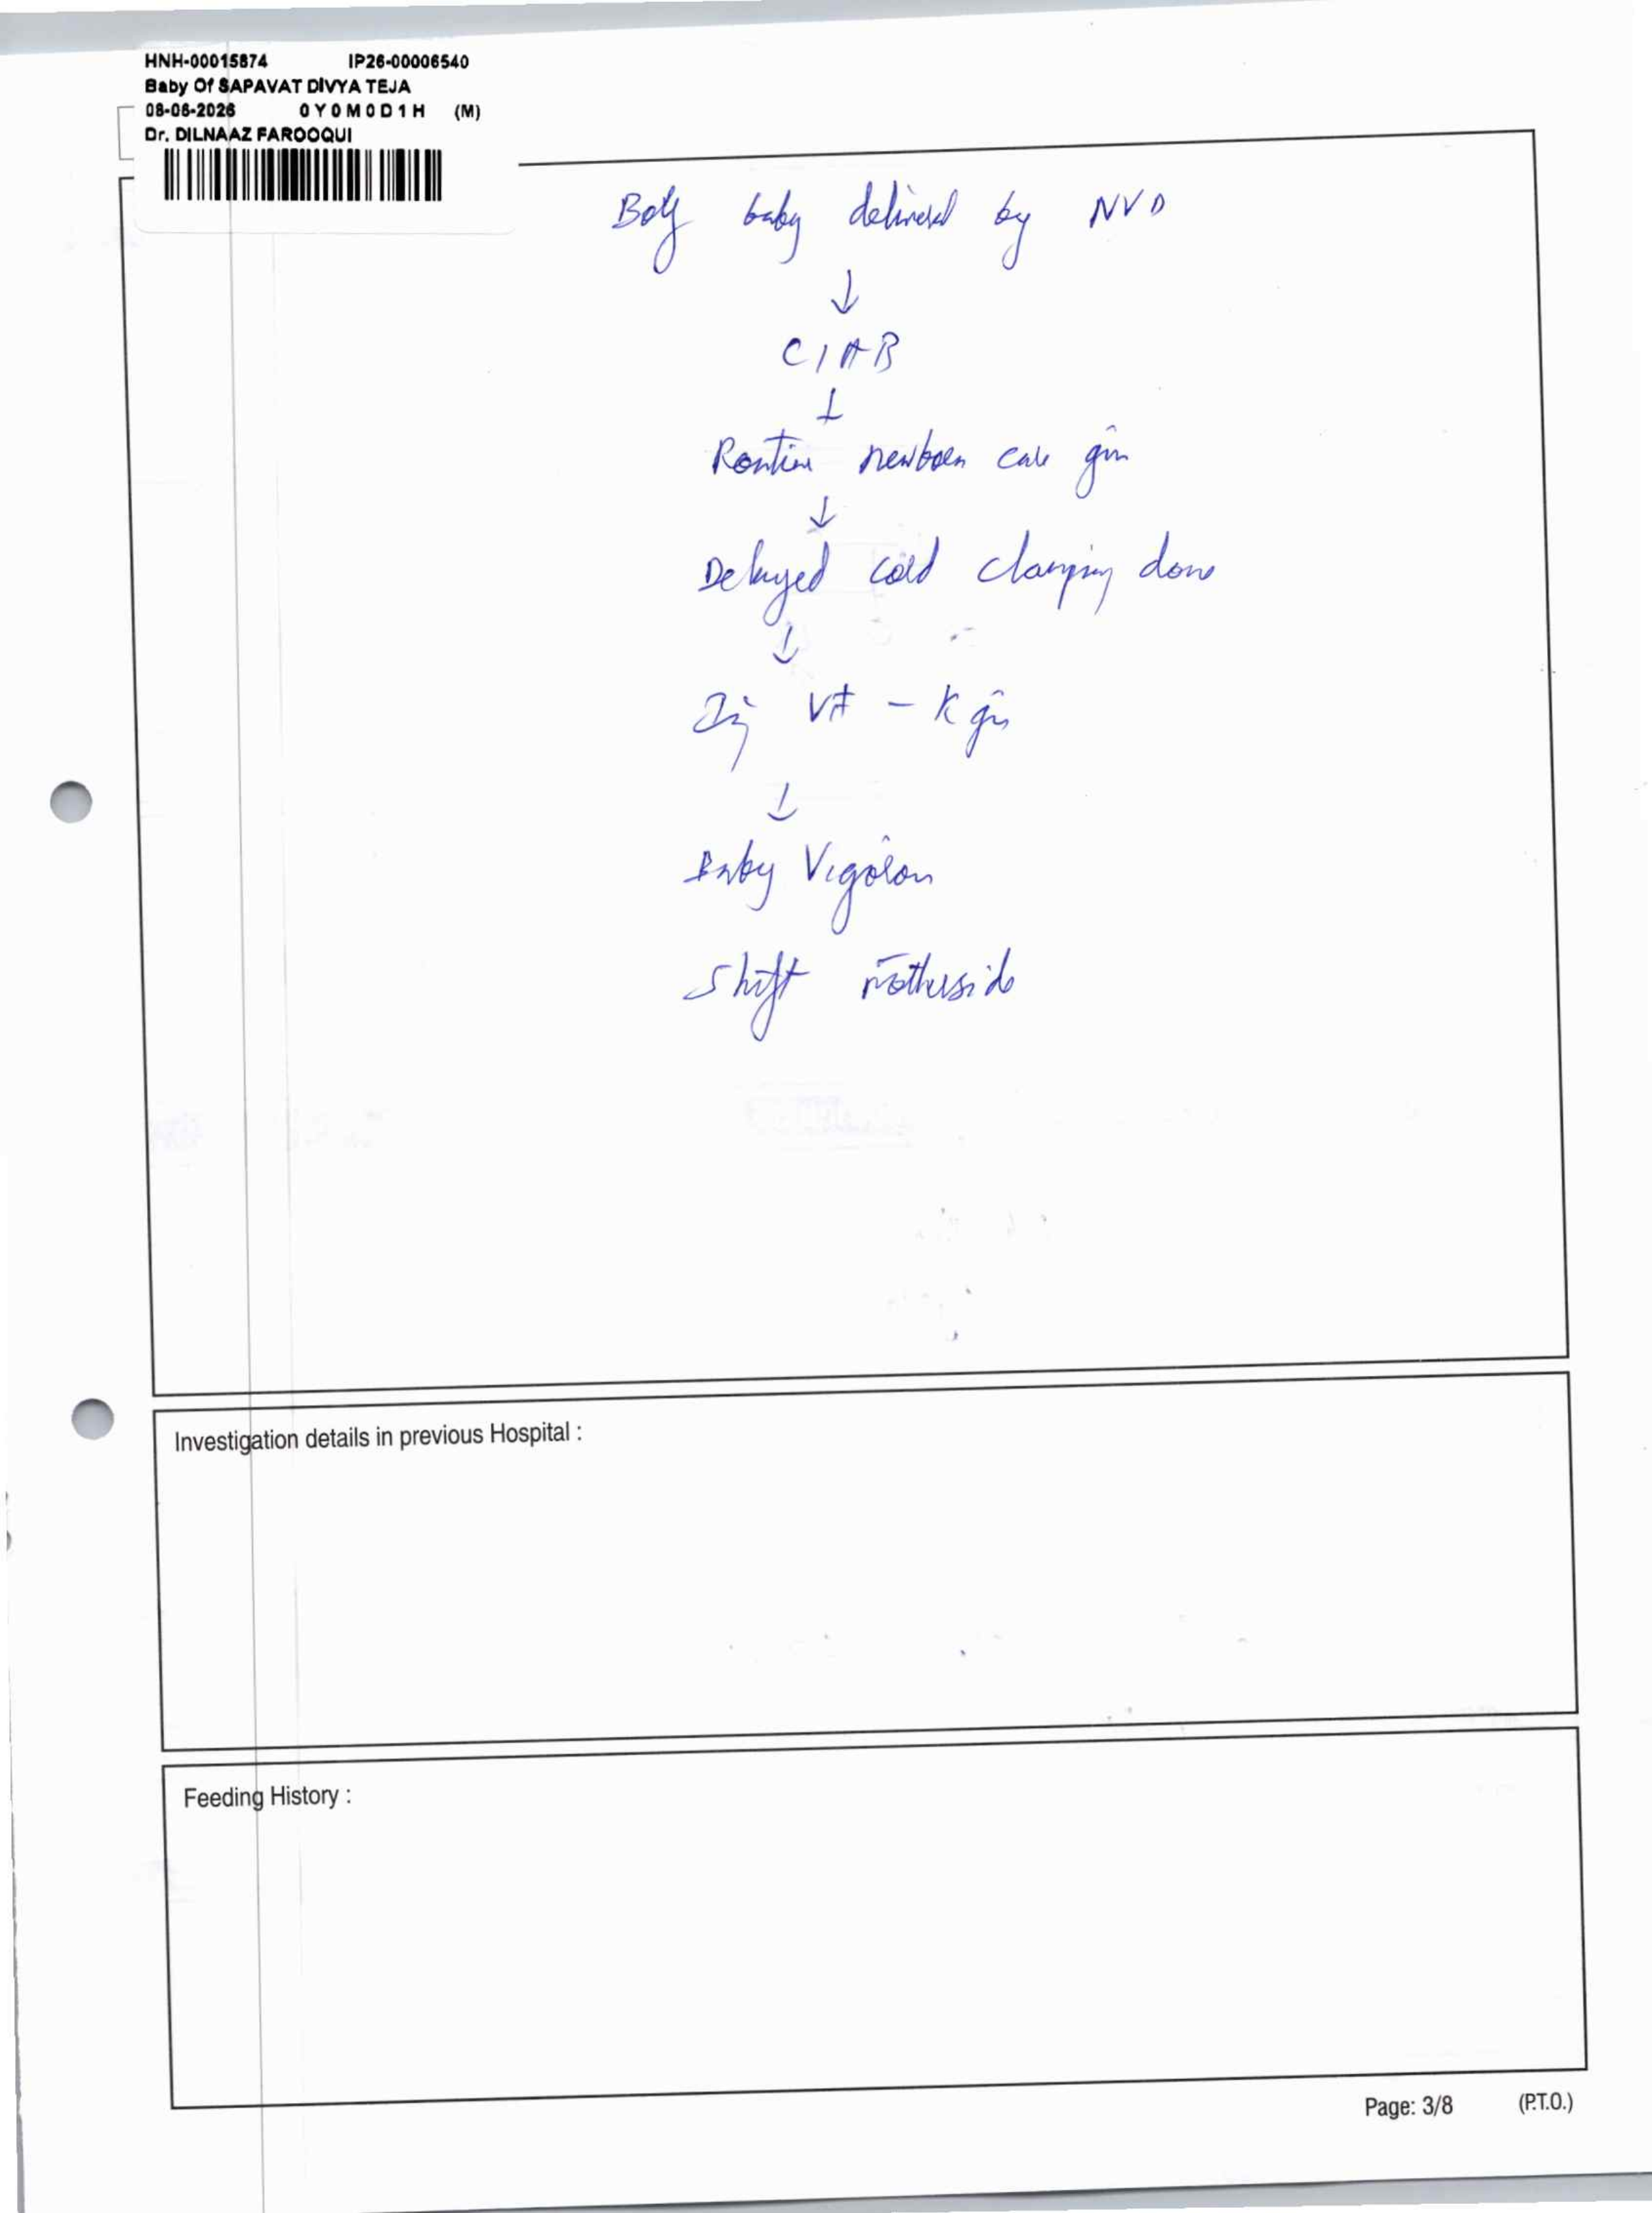 HNH-00015874 IP26-00006540
Baby Of SAPAVAT DIVYA TEJA
08-06-2026 0Y0M0D1H (M)
Dr. DILNAAZ FAROOQUI
Boy baby delivered by NVD
↓
CIAB
↓
Routine newborn care given
↓
Delayed cord clamping done
↓
Inj Vit - K given
↓
Baby Vigorous
Shift motherside
Investigation details in previous Hospital :
Feeding History :
Page: 3/8 (P.T.O.)